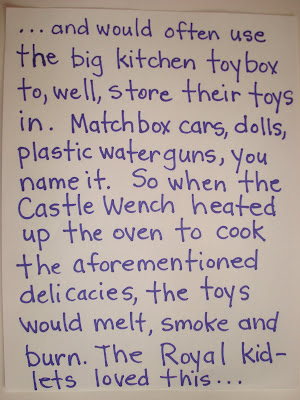 ...and would often use
the big kitchen toybox
to, well, store their toys
in. Matchbox cars, dolls,
plastic waterguns, you
name it. So when the
Castle Wench heated
up the oven to cook
the aforementioned
delicacies, the toys
would melt, smoke and
burn. The Royal kid-
lets loved this...